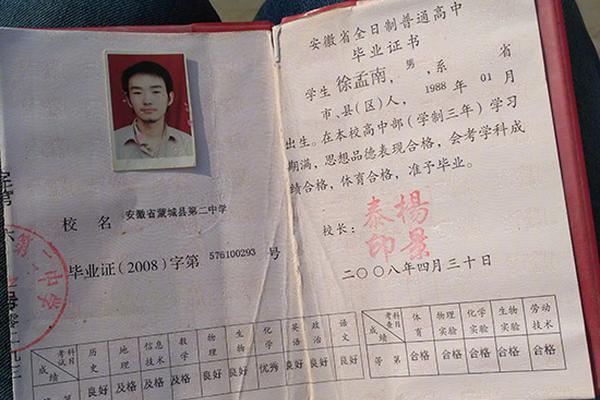 校名 安徽省蒙城县第二中学
毕业证(2008)字第 576100293 号
考试科目 历史 地理 信息技术 数学 物理 生物 化学 英语 政治 语文
成绩 良好 及格 及格 及格 良好 良好 优秀 良好 良好 良好
安徽省全日制普通高中
毕业证书
学生 徐孟南, 男, 系 省
市、县(区)人, 1988 年 01 月
出生。在本校高中部(学制三年)学习
期满,思想品德表现合格,会考学科成
绩合格,体育合格,准予毕业。
校长: 楊景泰印
二〇〇八年四月三十日
考查科目 成绩 体育 物理实验 化学实验 生物实验 劳动技术
等第 合格 合格 合格 合格 合格
第二中学